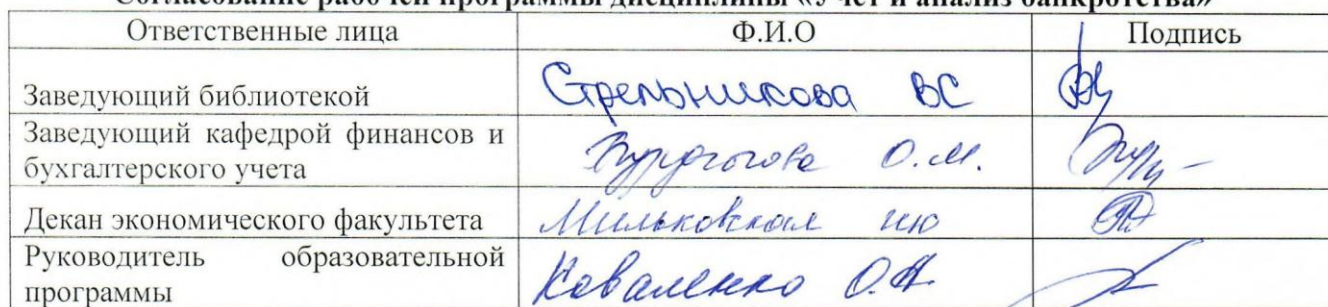 Согласование рабочей программы дисциплины «Учет и анализ банкротства»
Ответственные лица Ф.И.О Подпись
Заведующий библиотекой Стрельникова ВС
Заведующий кафедрой финансов и
бухгалтерского учета О.М.
Декан экономического факультета Мильковская ИЮ
Руководитель образовательной
программы Коваленко О.А.